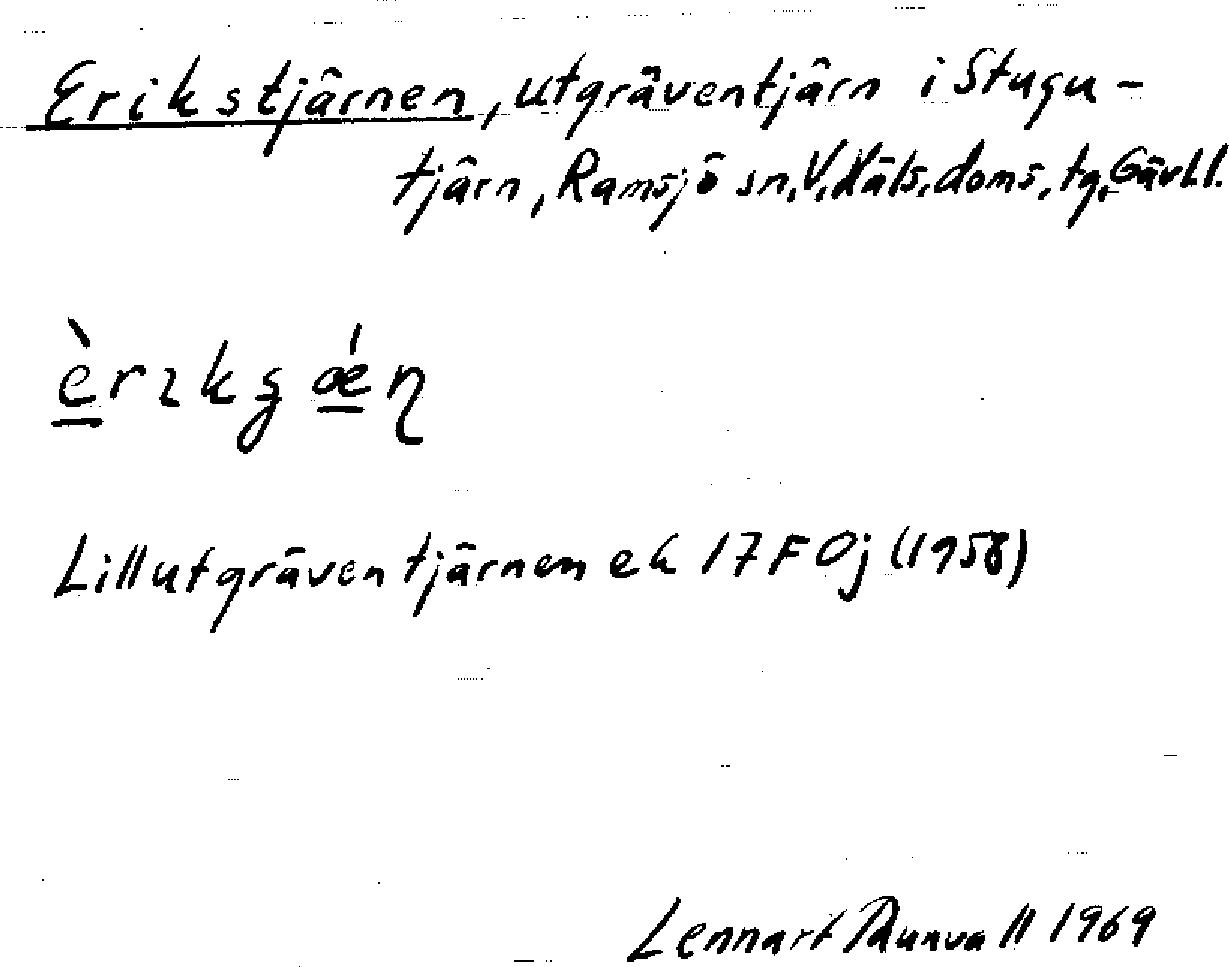 Erikstjärnen, utgräventjärn i Stugu-
tjärn, Ramsjö sn, V. Häls. doms. tg, Gävl.l.
èrɩkʂǽɳ
Lillutgräventjärnen ek 17F 0j (1958)
Lennart 1969